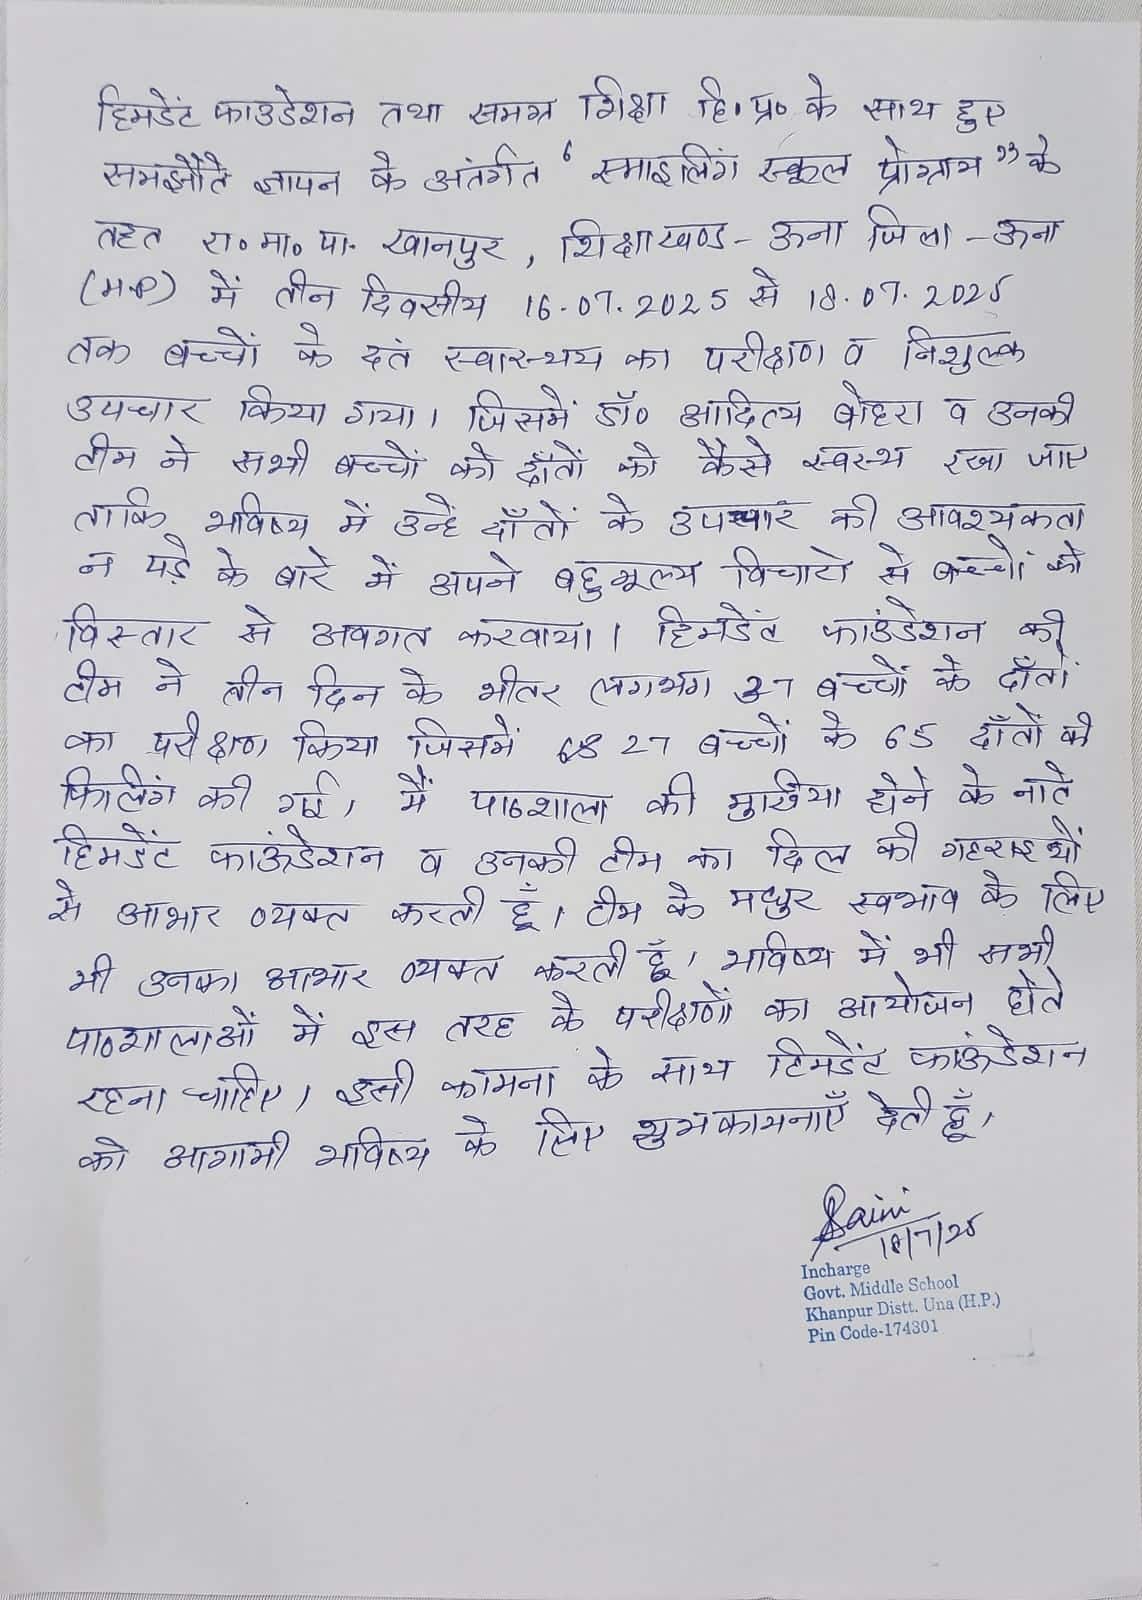 हिमडेंट फाउडेशन तथा समग्र शिक्षा हि॰प्र॰ के साथ हुए
समझौते ज्ञापन के अंतर्गत ‘ स्माइलिंग स्कूल प्रोग्राम ’’ के
तहत रा॰ मा॰ पा. खानपुर , शिक्षाखण्ड - ऊना जिला - ऊना
(हि॰प्र॰) में तीन दिवसीय 16.07.2025 से 18.07.2025
तक बच्चों के दतं स्वास्थ्य का परीक्षण व निशुल्क
उपचार किया गया। जिसमें डॉ॰ आदित्य बोहरा व उनकी
टीम ने सभी बच्चों को दाँतों को कैसे स्वस्थ रखा जाए
ताकि भविष्य में उन्हें दाँतों के उपचार की आवश्यकता
न पड़े के बारे में अपने बहुमूल्य विचारो से बच्चों को
विस्तार से अवगत करवाया। हिमडेंट फाउंडेशन की
टीम ने तीन दिन के भीतर लगभग 37 बच्चों के दाँतों
का परीक्षण किया जिसमें 27 बच्चों के 65 दाँतों की
फिलिंग की गई। मैं पाठशाला की मुखिया होने के नाते
हिमडेंट फाऊंडेशन व उनकी टीम का दिल की गहराइयों
से आभार व्यक्त करती हूँ। टीम के मधुर स्वभाव के लिए
भी उनका आभार व्यक्त करती हूँ। भविष्य में भी सभी
पाठशालाओं में इस तरह के परीक्षणों का आयोजन होते
रहना चाहिए। इसी कामना के साथ हिमडेंट फाऊंडेशन
को आगामी भविष्य के लिए शुभकामनाएँ देती हूँ।
Saini
18/7/25
Incharge
Govt. Middle School
Khanpur Distt. Una (H.P.)
Pin Code-174301